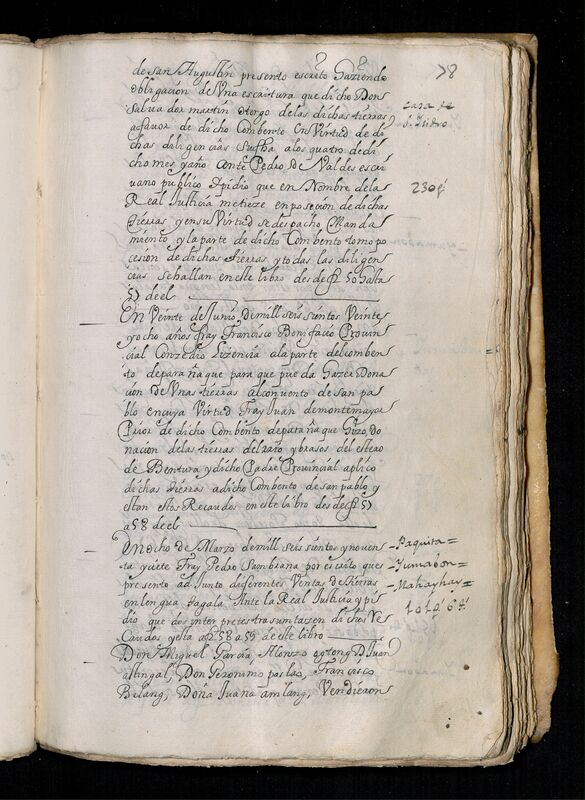 78
de san Augustin presento escrito Haziendo
obligacion de Vna escritura que dicho Don
Salvador martin otorgo delas dichas tierras
afavor de dicho Combento En Virtud de di
chas diligencias a los quatro dedi
cho mes y año ante Pedro de Valdes escri
uano publico Y pidio que en Nombre dela
Real Justicia metieze en poseción de dichas
tierras y en su Virtud se despacho Manda
miento y la parte de dicho Combento tomo po
cesion de dichas tierras y todas las diligen
cias se hallan en este libro desde fs 50 Hasta
57 de el
En Veinte de Junio de mill seis sientos Veinte
y ocho años fray Francisco Bonifacio Provin
cial Conzedio Lizencia ala parte del comben
to de parañaque para que pueda Hazer Dona
cion de Vnas tierras al convento de san pa
blo en cuya Virtud Fray Juan de montemayor
Prior de dicho Combento de parañaque Hizo do
nacion de las tierras del y brasos del estero
de Bentura y dicho Padre Provincial aplico
dichas tierras a dicho Combento de san pablo, y
estan estos Recaudos en este libro desde fs 57
a 58 de el
En ocho de Marzo de mill seis sientos y noven
ta y ciete Fray Pedro Sambrana por escrito que
presento ad Junto diferentes Ventas de tierras
en lengua tagala Ante la Real Justicia y pi
dio que dos interpretes trasumtazen dichos Re
caudos y esta a fs 58 a 59 de este libro
Don Miguel Garcia, Alonzo D Juan
Don Geronimo paslao, Francisco
Bilang, Doña Juana amlang, Vendieron
casa
s. Isidro
230 p
Paquita =
Yumabon =
Mahayhay =